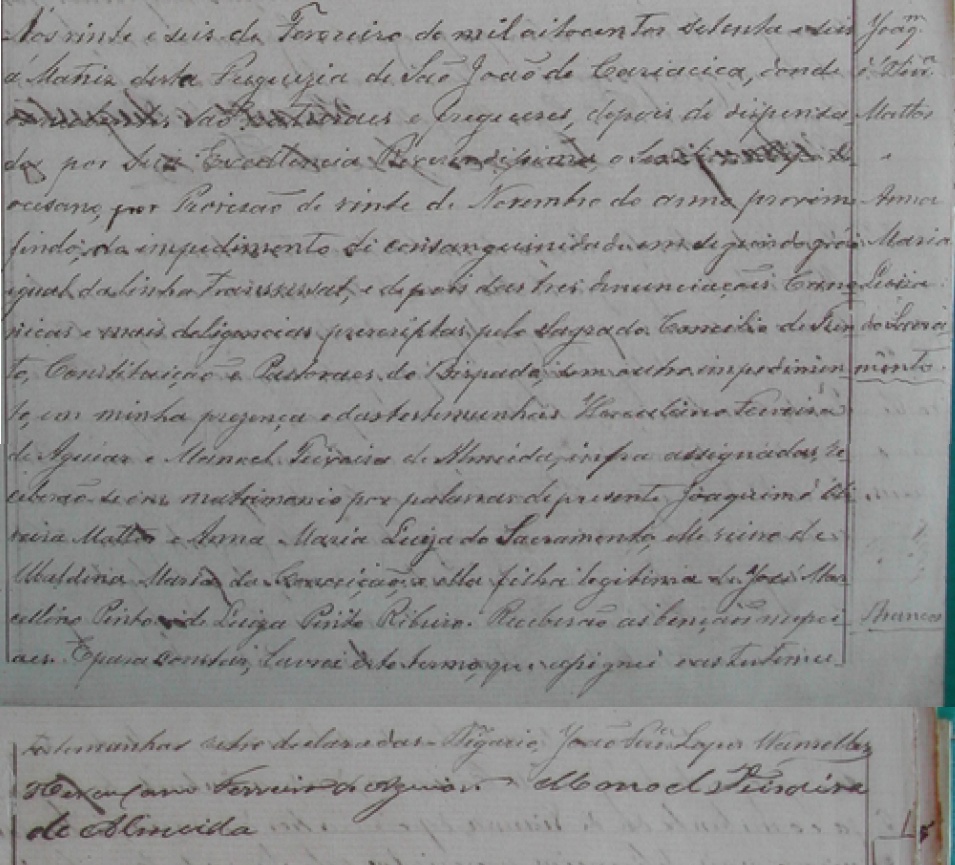 Aos vinte e seis de Fevereiro de mil oitocentos setenta e seis
á Matriz desta Freguezia de São João de Cariacica, donde
são naturaes e freguezes, depois de dispensa
dos por Sua Excellencia Reverendissima o
ocesano, por Provisão de vinte de Novembro do anno proxim
findo, do impedimento de consanguinidade em segundo gráo
igual da linha transversal, e depois das tres denunciações Cano
nicas e mais deligencias prescriptas pelo Sagrado Concilio de Tren
to, Constituição e Pastoraes do Bispado, sem outro impedimen
to, em minha presença e das testemunhas Herculano Ferreira
de Aguiar e Manoel Teixeira de Almeida, infra assignadas, re
ceberão-se em matrimonio por palavras de presente Joaquim d'Oli
veira Mattos e Anna Maria Luiza do Sacramento, elle viuvo de
Ubaldina Maria da Conceição, e ella filha legitima de José Mar
cellino Pinto e de Luiza Pinto Ribeiro. Receberão as benções nupci
aes. E para constar, lavrei este termo, que assignei e as testimu
Joaqm
d'Olivra
Mattos
Anna
Maria
Luiza
do Sacra
mento.
Brancos
testemunhas retro declaradas. Vigario, João Lopes
Herculano Ferreira de Aguiar. Manoel Teixeira
de Almeida